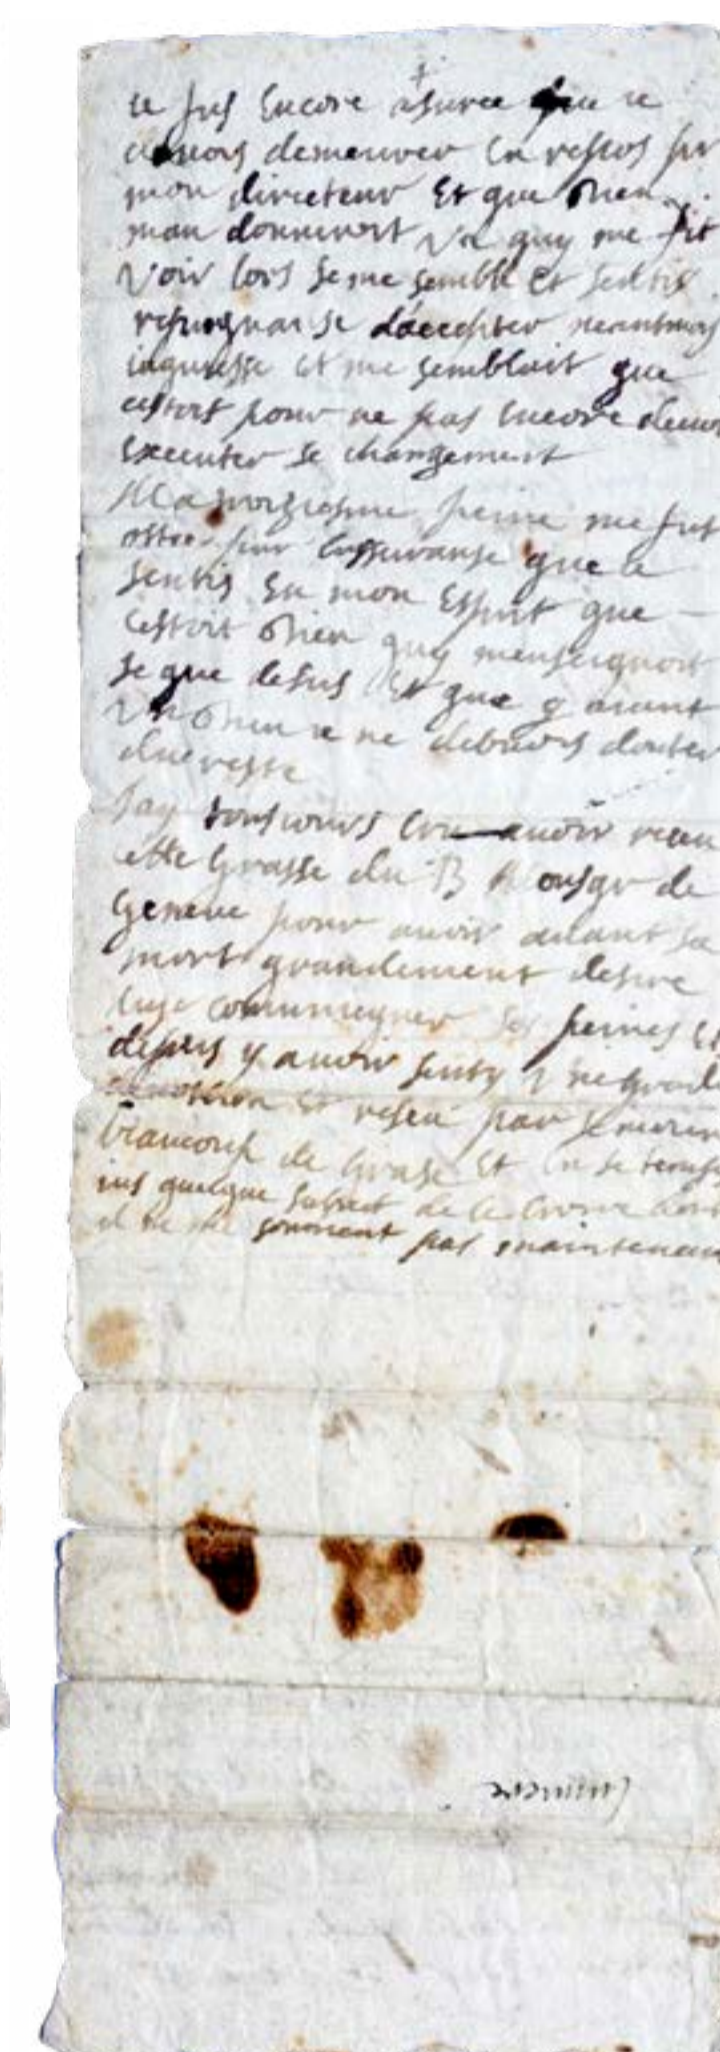 ie fus Encore asuree que ie
deuois demeurer En repos sur
mon directeur Et que Dieu
man donneroit vn quy me fit
voir lors se me semble Et sentis
repugnanse daccepter neantmois
iaquiesse Et me sembloit que
cestoit pour ne pas Encore deuoi
Executer se changement
Ma troiziesme peine me fut
ostee par Lasseuranse que ie
sentis En mon Esprit que
Cestoit Dieu quy menseignoit
se que ie suis Et que y aiant
vn Dieu ie ne debuois douter
du reste
Jay tousiours Creu auoir receu
cette Grasse du B Monsgr de
Geneue pour auoir auant sa
mort grandement desire
luy communiquer ses peines Et
depuis y auoir senty vne grande
deuotion Et reseu par se moien
beaucoup de Grase Et En se temps
ius quelque subiect de le croire dont
il ne me souuient pas maintenant
Lumiere